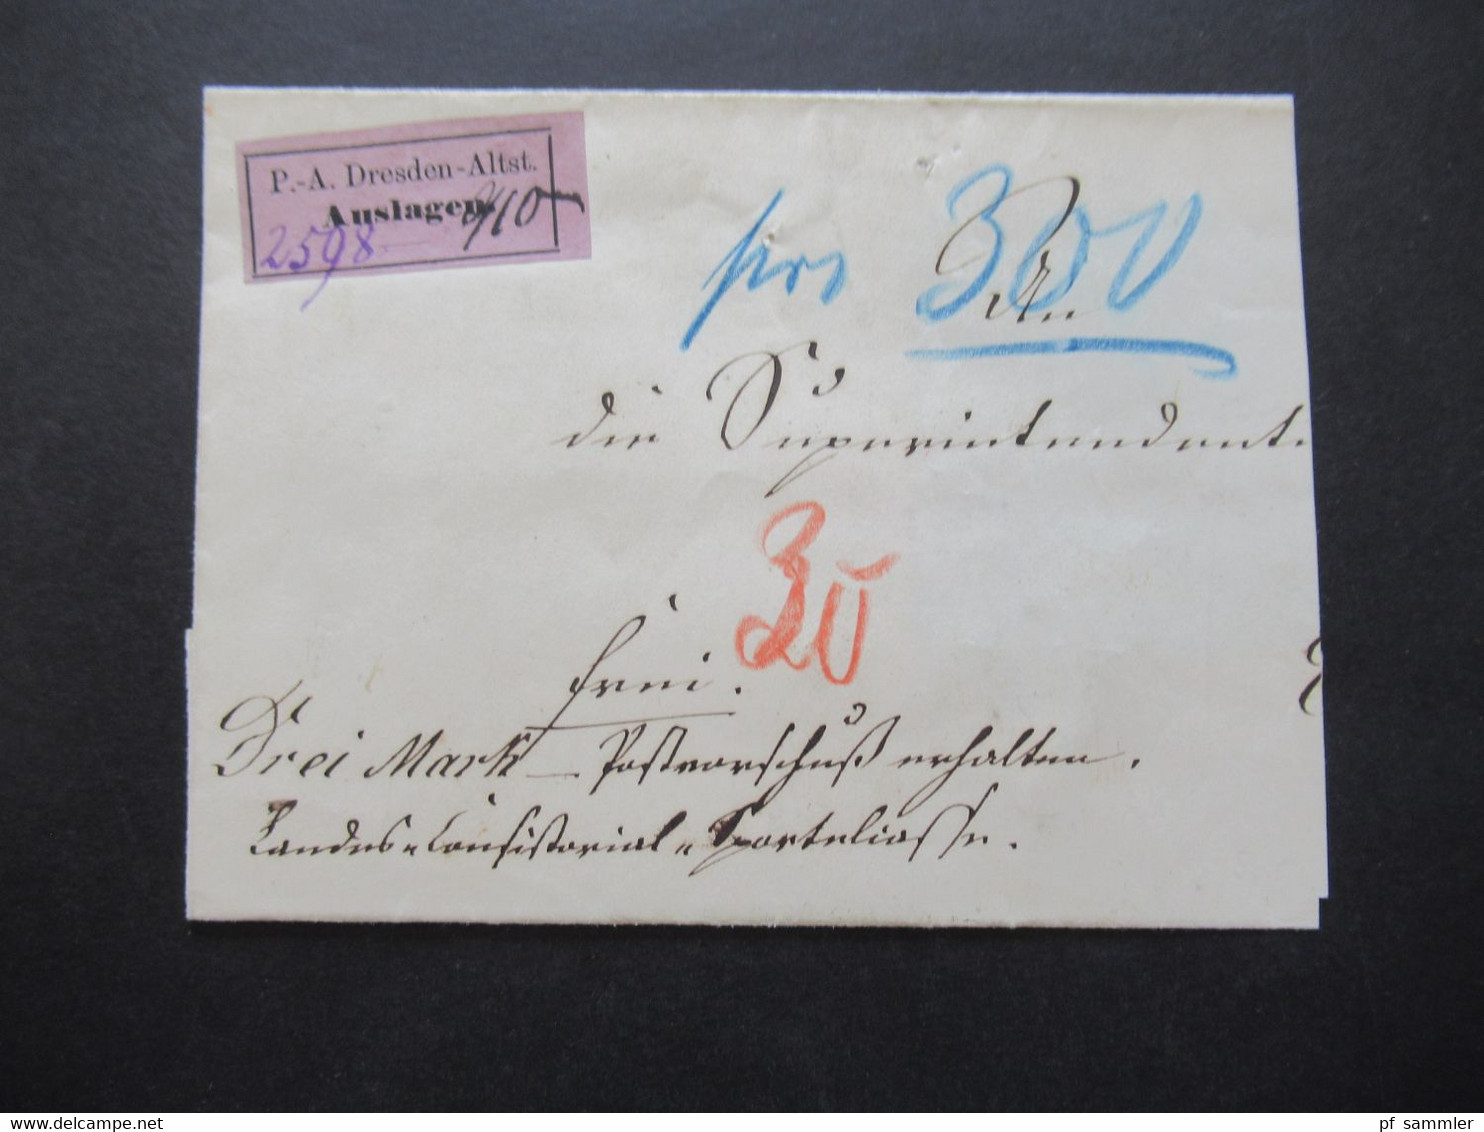 P.-A. Dresden-Altst.
Auslagen.
2598
9/10
pro 300
An
die Superintendent
30
frei.
Drei Mark – Postvorschuß erhalten.
Landes-Consistorial-Sportelcasse.
www.delcampe.net
pf_sammler